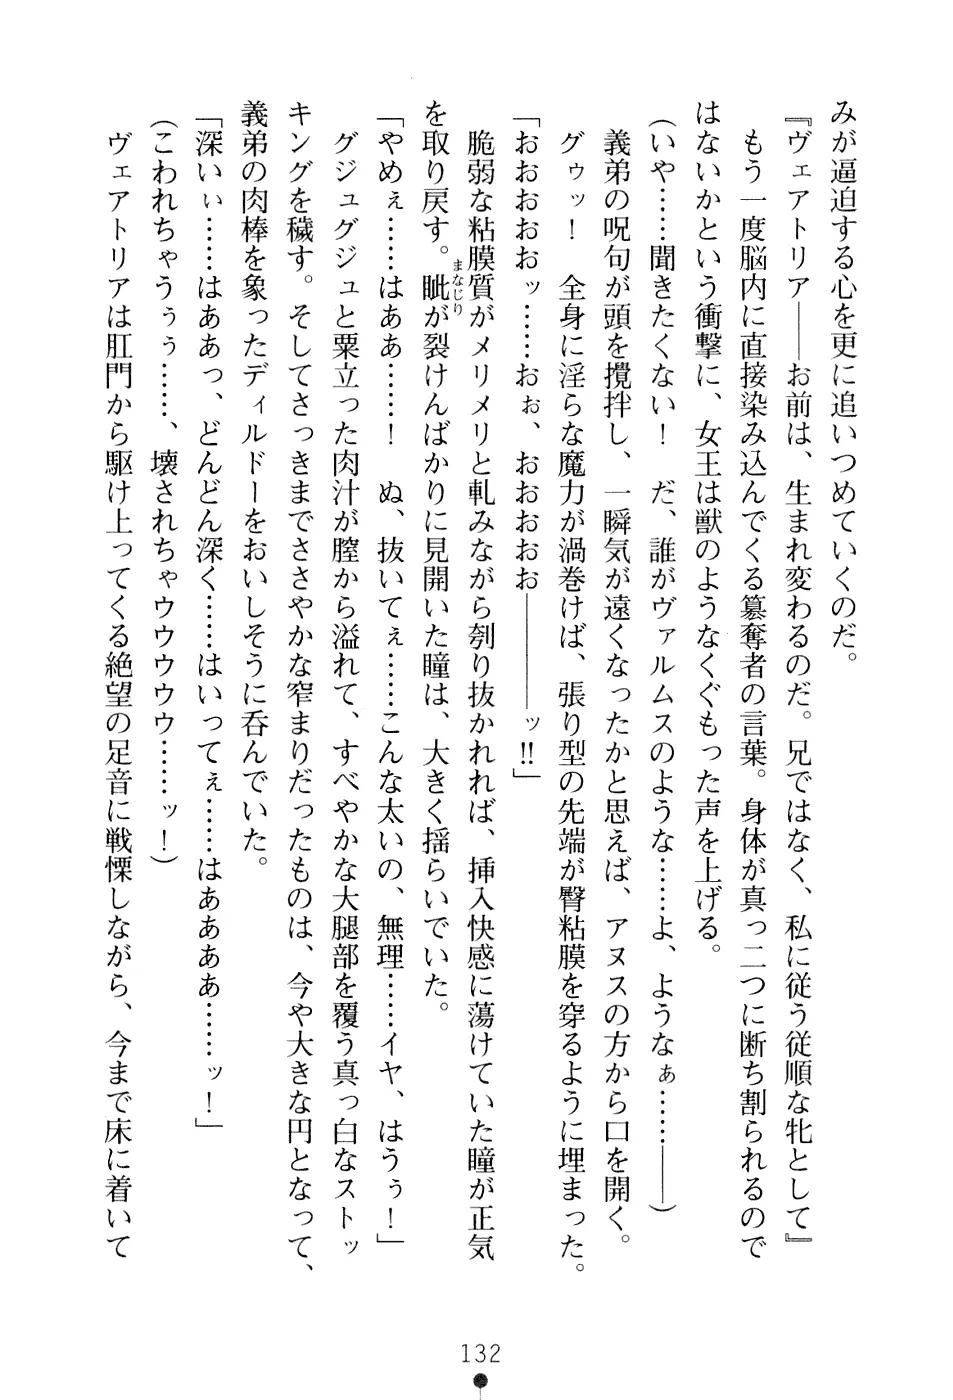 みが逼迫する心を更に追いつめていくのだ。
『ヴェアトリア――お前は、生まれ変わるのだ。兄ではなく、私に従う従順な牝として』
もう一度脳内に直接染み込んでくる簒奪者の言葉。身体が真っ二つに断ち割られるので
はないかという衝撃に、女王は獣のようなくぐもった声を上げる。
(いや……聞きたくない! だ、誰がヴァルムスのような……よ、ようなぁ……――)
義弟の呪句が頭を攪拌し、一瞬気が遠くなったかと思えば、アヌスの方から口を開く。
グゥッ! 全身に淫らな魔力が渦巻けば、張り型の先端が臀粘膜を穿るように埋まった。
「おおおおおッ……おぉ、おおおおお――――ッ!!」
脆弱な粘膜質がメリメリと軋みながら刳り抜かれれば、挿入快感に蕩けていた瞳が正気
を取り戻す。眦が裂けんばかりに見開いた瞳は、大きく揺らいでいた。
まなじり
「やめぇ……はあぁ……! ぬ、抜いてぇ……こんな太いの、無理……イヤ、はうぅ!」
グジュグジュと粟立った肉汁が膣から溢れて、すべやかな大腿部を覆う真っ白なストッ
キングを穢す。そしてさっきまでささやかな窄まりだったものは、今や大きな円となって、
義弟の肉棒を象ったディルドーをおいしそうに呑んでいた。
「深いぃ……はああっ、どんどん深く……はいってぇ……はああああ……ッ!」
(こわれちゃうぅぅ……、壊されちゃウウウウウ……ッ!)
ヴェアトリアは肛門から駆け上ってくる絶望の足音に戦慄しながら、今まで床に着いて
132